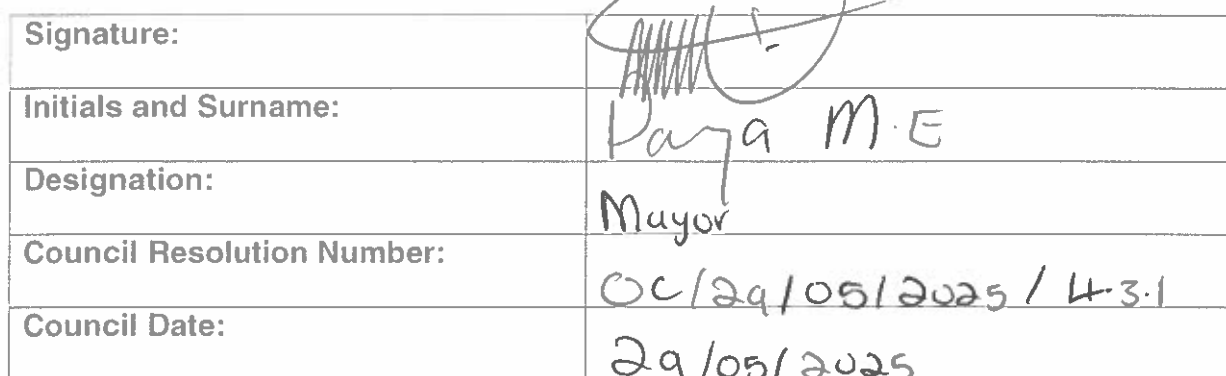 Signature:
Initials and Surname: Paya M.E
Designation: Mayor
Council Resolution Number: OC/29/05/2025/4.3.1
Council Date: 29/05/2025